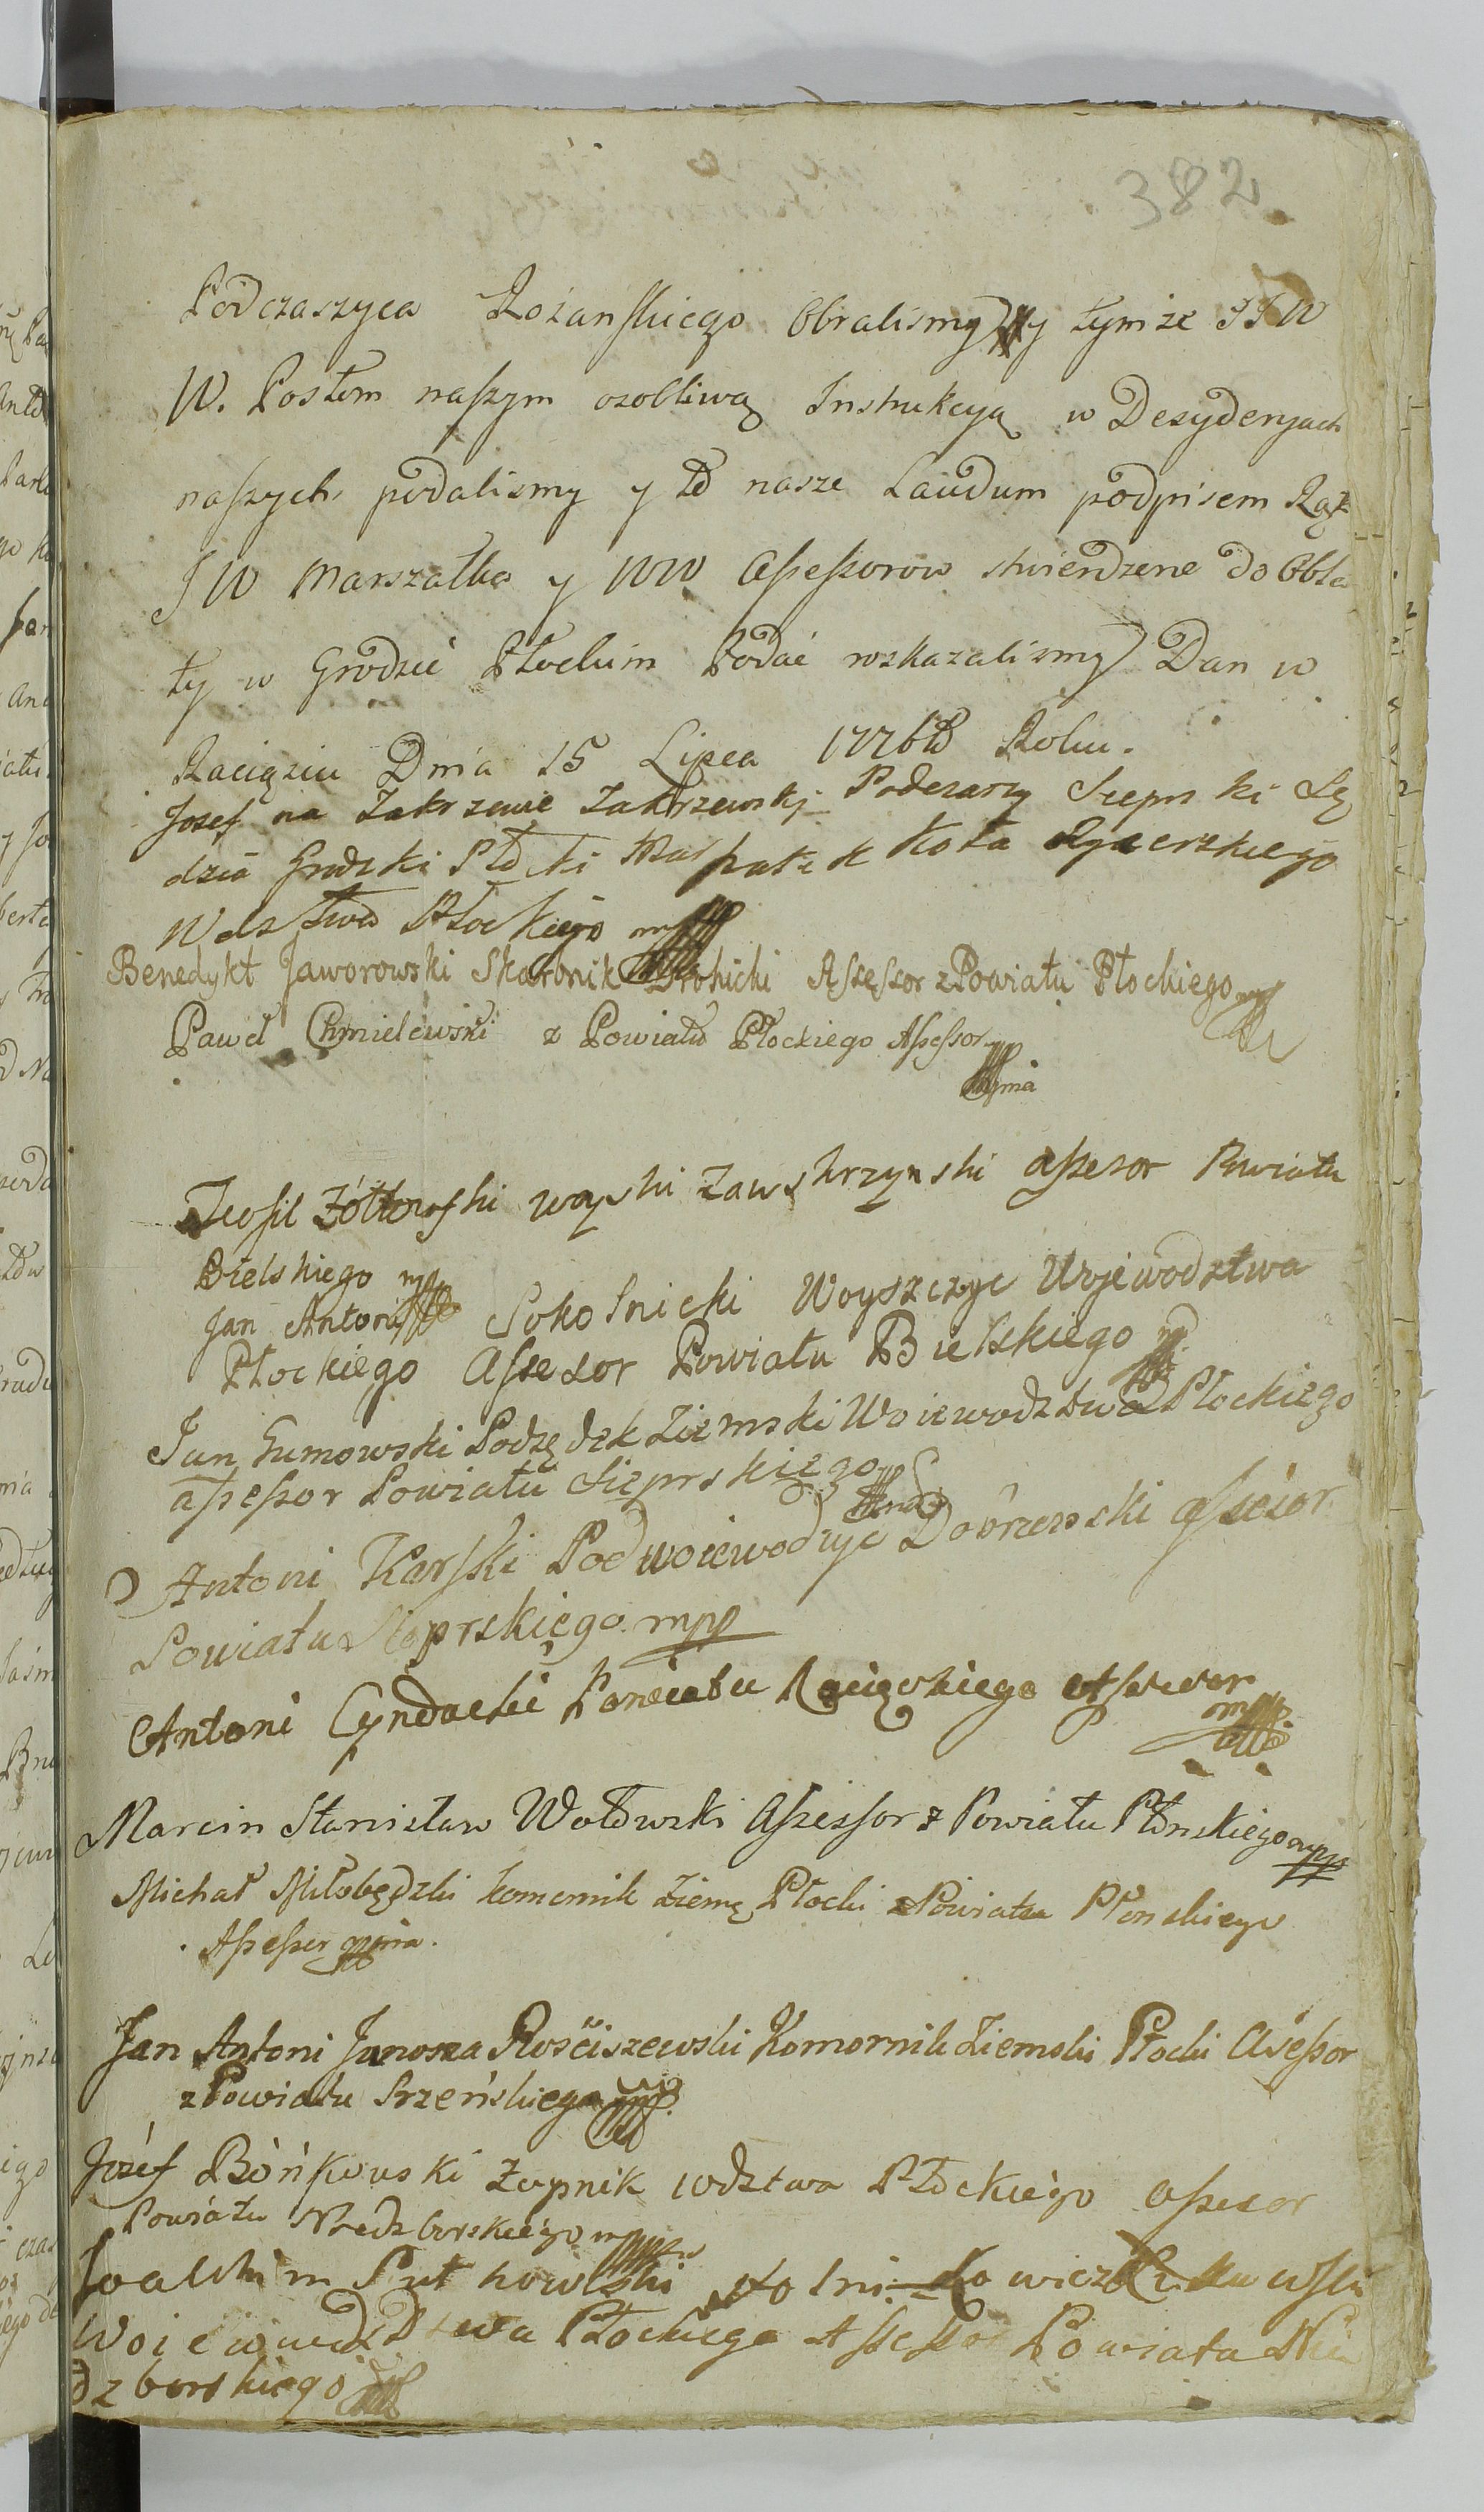 382
Podczaszyca Rożanskiego Obralismy y tymze JJW
W. Posłom naszym osobliwą Instrukcyą w Dezyderyach
naszych podalismy y to nasze Laudum podpisem Rąk
JW Marszałka y WW Assessorow stwierdzone do Obla
ty w Grodzie Płockim Podać roskazalismy Dan w
Raciążu Dnia 15 Lipca 1776to Roku.
Jozef na Zakrzewie Zakrzewskj Podczaszy Sieprski Sę
dzia Grodzki Płocki Marszałek Koła Rycerskiego
Wdztwa Płockiego mpp
Benedykt Jaworowski Skarbnik Drohicki Assessor z Powiatu Płockiego mpp
Paweł Chmielewski z Powiatu Płockiego Assessor
mpp
Teofil Żółtowski woyski Zawskrzynski assesor Powiatu
Bielskiego mpp
Jan Antoni Sokolnicki Woyszczyc Wojewodztwa
Płockiego Assesor Powiatu Bielskiego mpp
Jan Gumowski Podsędek Ziemski Woiewodztwa Płockiego
assessor Powiatu Sieprskiego
Antoni Karski Podwoiewodzyc Dobrzynski assesor
Powiatu Sieprskiego mpp
Antoni Cyndacki Powiatu Raciązkiego Assessor
mpp
Marcin Stanisław Wołowski Assessor z Powiatu Płonskiego mpp
Michał Miłobędzki komornik Ziems. Płocki z Powiatu Płonskiego
Assessor mpp
Jan Antoni Junosza Rosciszewski Komornik Ziemski Płocki Asessor
z Powiatu Srzeńskiego mpp
Józef Bońkowski Łupnik wdztwa Płockiego assesor
Powiatu Niedzborskiego mpp
Joachim Rutkowski
Woiewudztwa Płockiego Assessor Powiatu Nie
dzborskiego